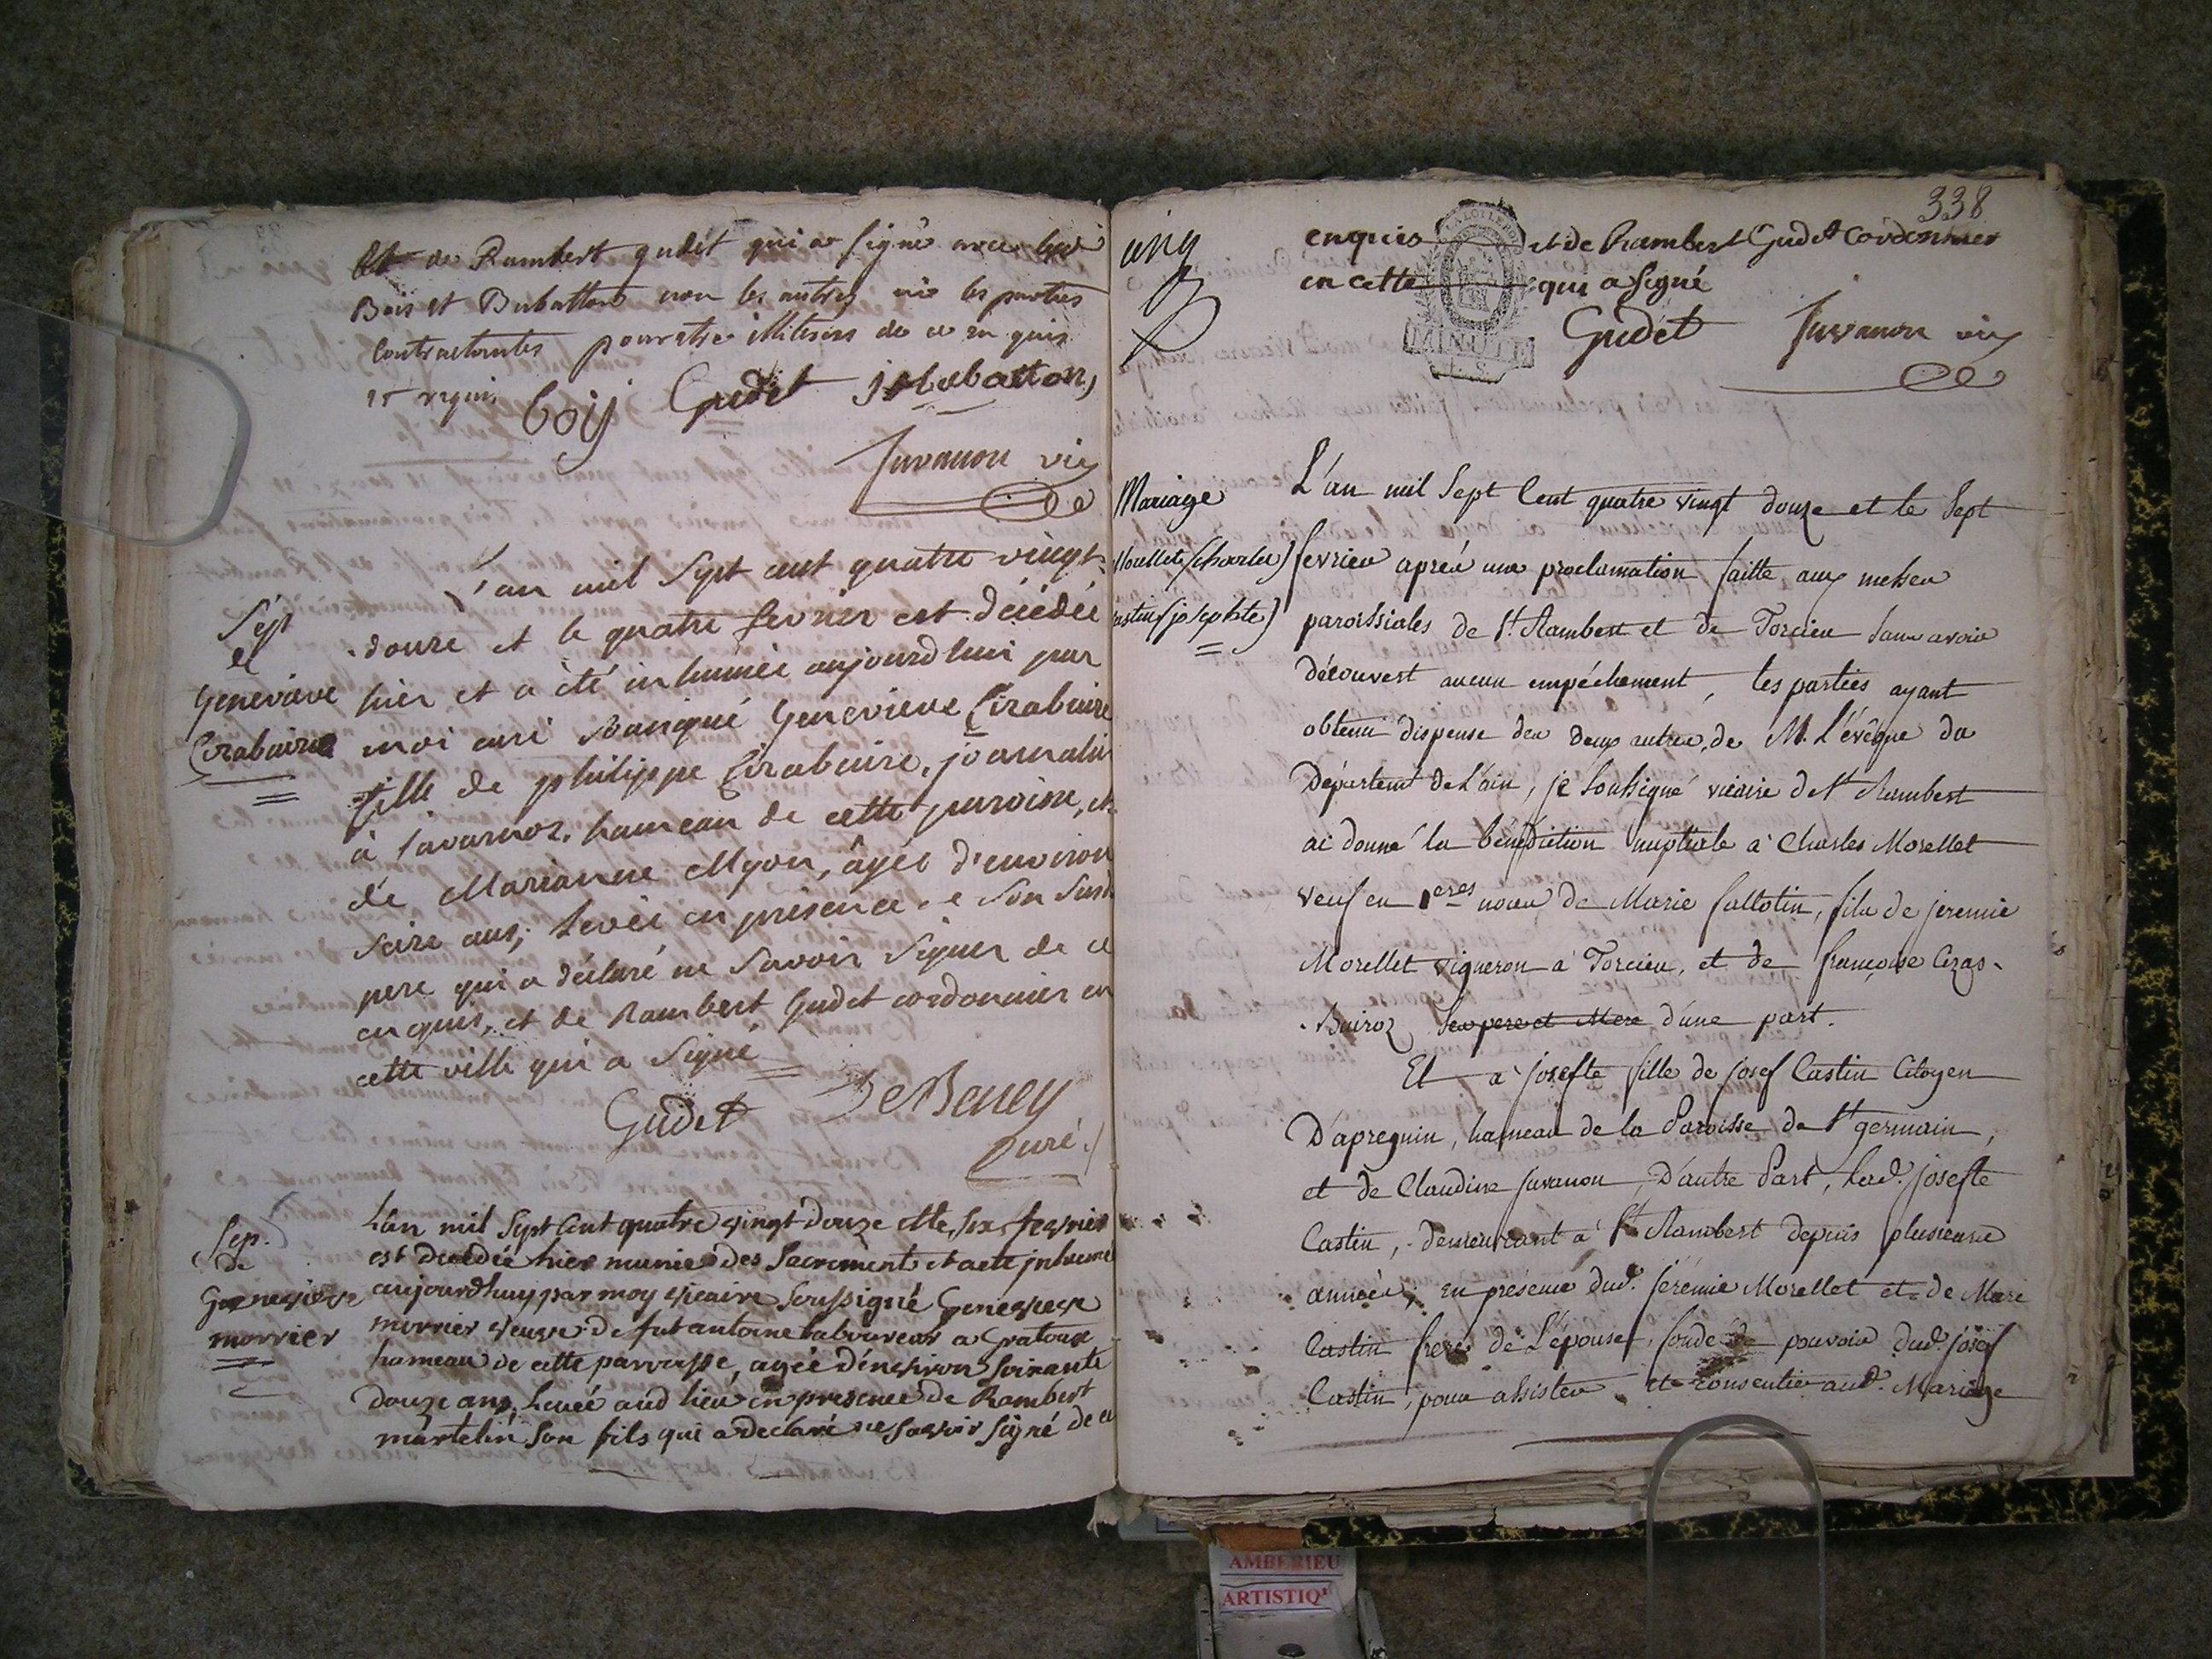 et de Rambert gudét qui a signé avec led
Bois et Bubatton non les autres ni les parties
Contractantes pour etre illitérés de ce enquis
et requis
boij Gudét j bubatton
Juvanon vic
L'an mil Sept cent quatre vingt
Sép
el
Genevieve
Cirabuire
douze et le quatre fevrier est décédée
hier et a été inhumée aujourd'hui par
moi curé Soussigné Genevieve Cirabuire
fille de philippe Cirabuire, journalier
à Javarnoz, hameau de cette paroisse, et
de Marianne Myon, âgée d'environ
seize ans; Levée en présence de son Susd.
pere qui a déclaré ne Savoir Signer de ce
enquis, et de Rambert Gudet cordonnier en
cette ville qui a Signé
Gudet DeBeney
Curé.
Sep.
de
Genevieve
morrier
L'an mil Sept Cent quatre vingt douze et le six fevrier
est decedée hier munie des Sacrements et a ete inhumé
aujourdhuy par moy vicaire Soussigné Genevieve
morrier veuve de fut antoine laboureur a Gratoux
hameau de cette parroisse, agée d'environ Soixante
douze ans, Levée aud lieu en presence de Rambert
martelin Son fils qui a declaré ne Savoir signé de ce
338
enquis et de Rambert Gudet Cordonnier
en cette qui a signé
MINUTE
Gudet Juvanon vic
Mariage
Morellet (charles)
Castin (josephte)
L'an mil Sept Cent quatre vingt douze et le Sept
fevrier aprés une proclamation faitte aux messes
paroissiales de St. Rambert et de Torcieu sans avoir
découvert aucun empéchement, les parties ayant
obtenu dispense des deux autres, de M. L'évêque du
Départemt de L'ain, je Soussigné vicaire de St Rambert
ai donné la bénédiction nuptiale à Charles Morellet
veuf en 1eres noces de Marie fallotin, fils de jeremie
Morellet vigneron à Torcieu, et de françoise Ciras-
-Buiroz ses pere et Mere d'une part.
Et à josefte fille de josef Castin Citoyen
D'apregnin, hameau de la Paroisse de St germain,
et de Claudine Juvanon, D'autre Part, lad. josefte
Castin, demeurant à St Rambert depuis plusieurs
années; en présence dud. jérémie Morellet et de Mare
Castin frere de L'épouse, fondé de pouvoir dud. josef
Castin, pour assister et consentir aud. Mariage
AMBERIEU
ARTISTIQ